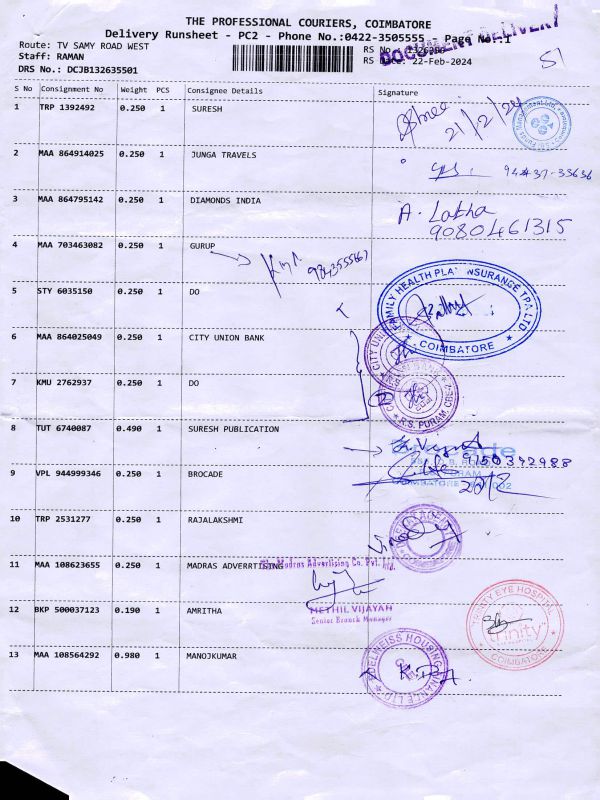 THE PROFESSIONAL COURIERS, COIMBATORE
Delivery Runsheet - PC2 - Phone No.:0422-3505555 - Page No.:1
DOCUMENT DELIVERY
Route: TV SAMY ROAD WEST
RS No
Staff: RAMAN
RS Date: 22-Feb-2024
51
DRS No.: DCJB132635501
S No Consignment No Weight PCS Consignee Details Signature
1 TRP 1392492 0.250 1 SURESH
21/2/24
2 MAA 864914025 0.250 1 JUNGA TRAVELS
3 MAA 864795142 0.250 1 DIAMONDS INDIA
A. Latha
9080461315
4 MAA 703463082 0.250 1 GURUP
5 STY 6035150 0.250 1 DO
FAMILY HEALTH PLAN INSURANCE TPA LTD
COIMBATORE
6 MAA 864025049 0.250 1 CITY UNION BANK
CITY UNION
7 KMU 2762937 0.250 1 DO
R.S. PURAM, CBE
8 TUT 6740087 0.490 1 SURESH PUBLICATION
9150392988
9 VPL 944999346 0.250 1 BROCADE
Brocade
COIMBATORE
10 TRP 2531277 0.250 1 RAJALAKSHMI
11 MAA 108623655 0.250 1 MADRAS ADVERRTISING
Madras Advertising Co. Pvt. Ltd.
METHIL VIJAYAN
Senior Branch Manager
12 BKP 500037123 0.190 1 AMRITHA
TRINITY EYE HOSPITAL
trinity
COIMBATORE
13 MAA 108564292 0.980 1 MANOJKUMAR
EDELWEISS HOUSING FINANCE LTD